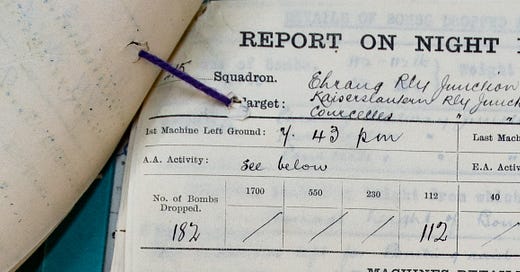 REPORT ON NIGHT
Squadron. Ehrang Rly Junction
Target: Kaiserslautern Rly Junc
Courcelles " "
1st Machine Left Ground: 7. 43 pm Last Mach
A.A. Activity: See below E.A. Activ
No. of Bombs Dropped. 1700 550 230 112 40
182 / / / 112 /
MACHINES DETAI